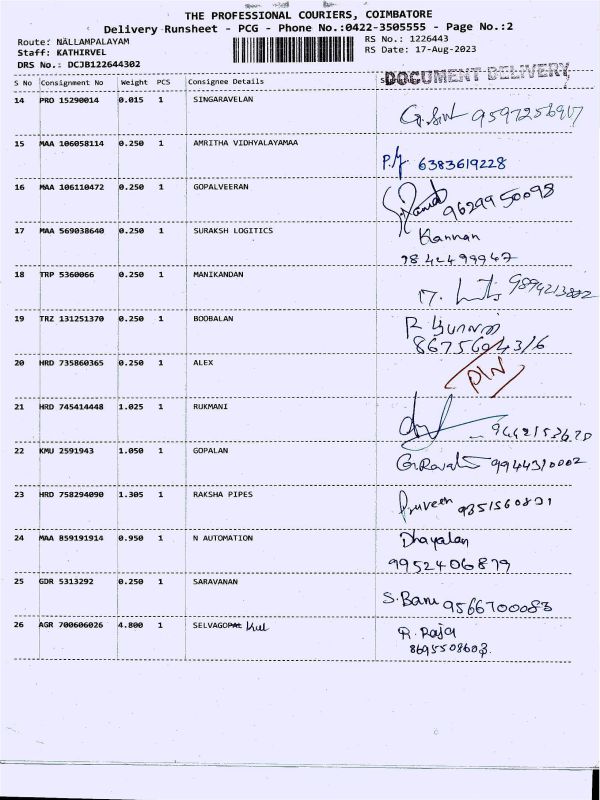 THE PROFESSIONAL COURIERS, COIMBATORE
Delivery Runsheet - PCG - Phone No.:0422-3505555 - Page No.:2
Route: NALLAMPALAYAM RS No.: 1226443
Staff: KATHIRVEL RS Date: 17-Aug-2023
DRS No.: DCJB122644302
DOCUMENT DELIVERY
S No Consignment No Weight PCS Consignee Details
14 PRO 15290014 0.015 1 SINGARAVELAN
15 MAA 106058114 0.250 1 AMRITHA VIDHYALAYAMAA
6383619228
16 MAA 106110472 0.250 1 GOPALVEERAN
9629950098
17 MAA 569038640 0.250 1 SURAKSH LOGITICS Kannan
9842499947
18 TRP 5360066 0.250 1 MANIKANDAN
19 TRZ 131251370 0.250 1 BOOBALAN
20 HRD 735860365 0.250 1 ALEX
21 HRD 745414448 1.025 1 RUKMANI
22 KMU 2591943 1.050 1 GOPALAN 9944310002
23 HRD 758294090 1.305 1 RAKSHA PIPES Praveen
24 MAA 859191914 0.950 1 N AUTOMATION Dhayalan
9952406879
25 GDR 5313292 0.250 1 SARAVANAN
S.Banu 9566700083
26 AGR 700606026 4.800 1 SELVAGOPAL R. Raja